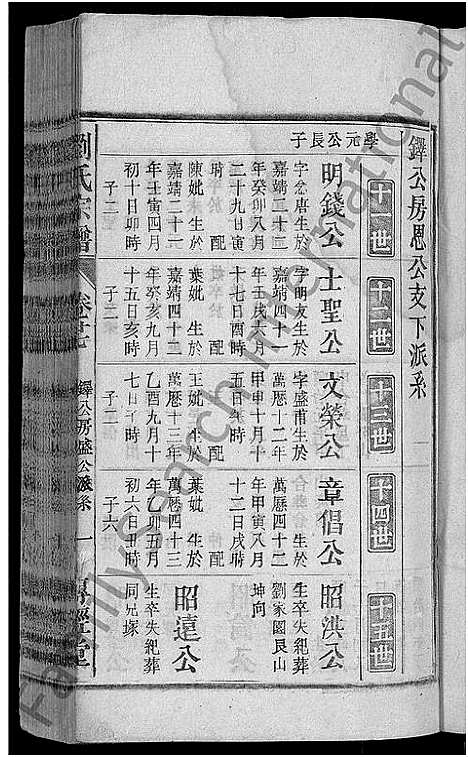 鐸公房恩公支下派系
十一世
十二世
十三世
十四世
十五世
學元公長子
明錢公
字念唐生於
嘉靖二十二
年癸卯八月
二十九日寅
時 配
陳妣 生於
嘉靖二十一
年壬寅四月
初十日卯時
子二
士聖公
字明友生於
嘉靖四十一
年壬戌六月
十七日酉時
配
葉妣 生於
嘉靖四十二
年癸亥九月
十五日亥時
子二
文榮公
字盛甫生於
萬曆十二年
甲申十月十
五日 時
配
王妣 生於
萬曆十三年
乙酉九月十
七日 時
子二
章倡公
生於
萬曆四十二
年甲寅八月
十二日戌時
配
葉妣 生於
萬曆四十三
年乙卯五月
初六日丑時
子六
昭洪公
生卒失紀葬
劉家園艮山
坤向
昭遠公
生卒失紀葬
同兄塚
劉氏宗譜
卷廿七
鐸公房盛公派系
一
FamilySearch International